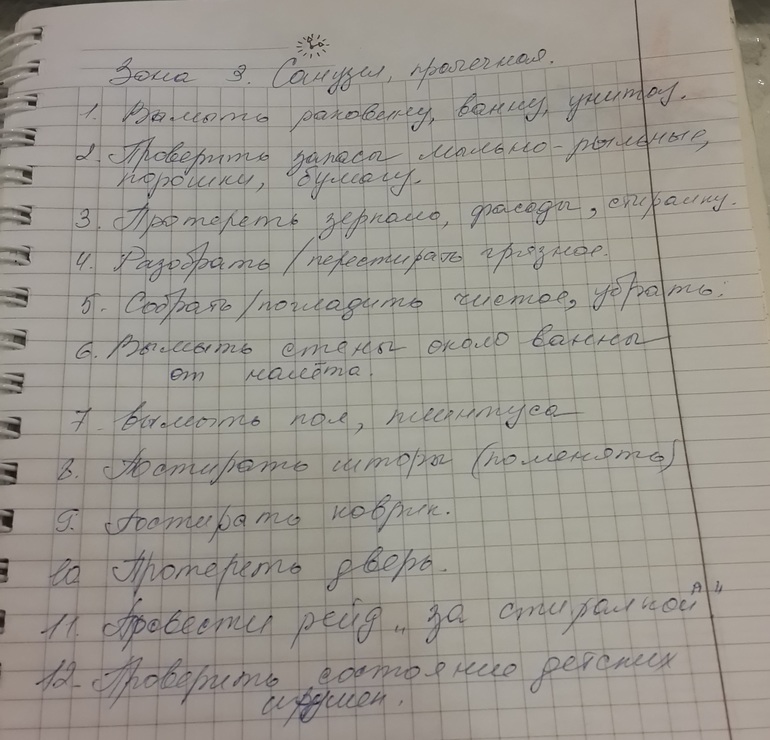 Зона 3. Санузел, прачечная.
1. Вымыть раковину, ванну, унитаз.
2. Проверить запасы мыльно-рыльные,
порошки, бумагу.
3. Протереть зеркала, фасады, стиралку.
4. Разобрать/перестирать грязное.
5. Собрать/погладить чистое, убрать.
6. Вымыть стены около ванны
от налёта.
7. Вымыть пол, плинтуса
8. Постирать шторы (поменять)
9. Постирать коврик.
10 Протереть дверь.
11. Провести рейд „за стиралкой"
12. Проверить состояние детских
игрушек.